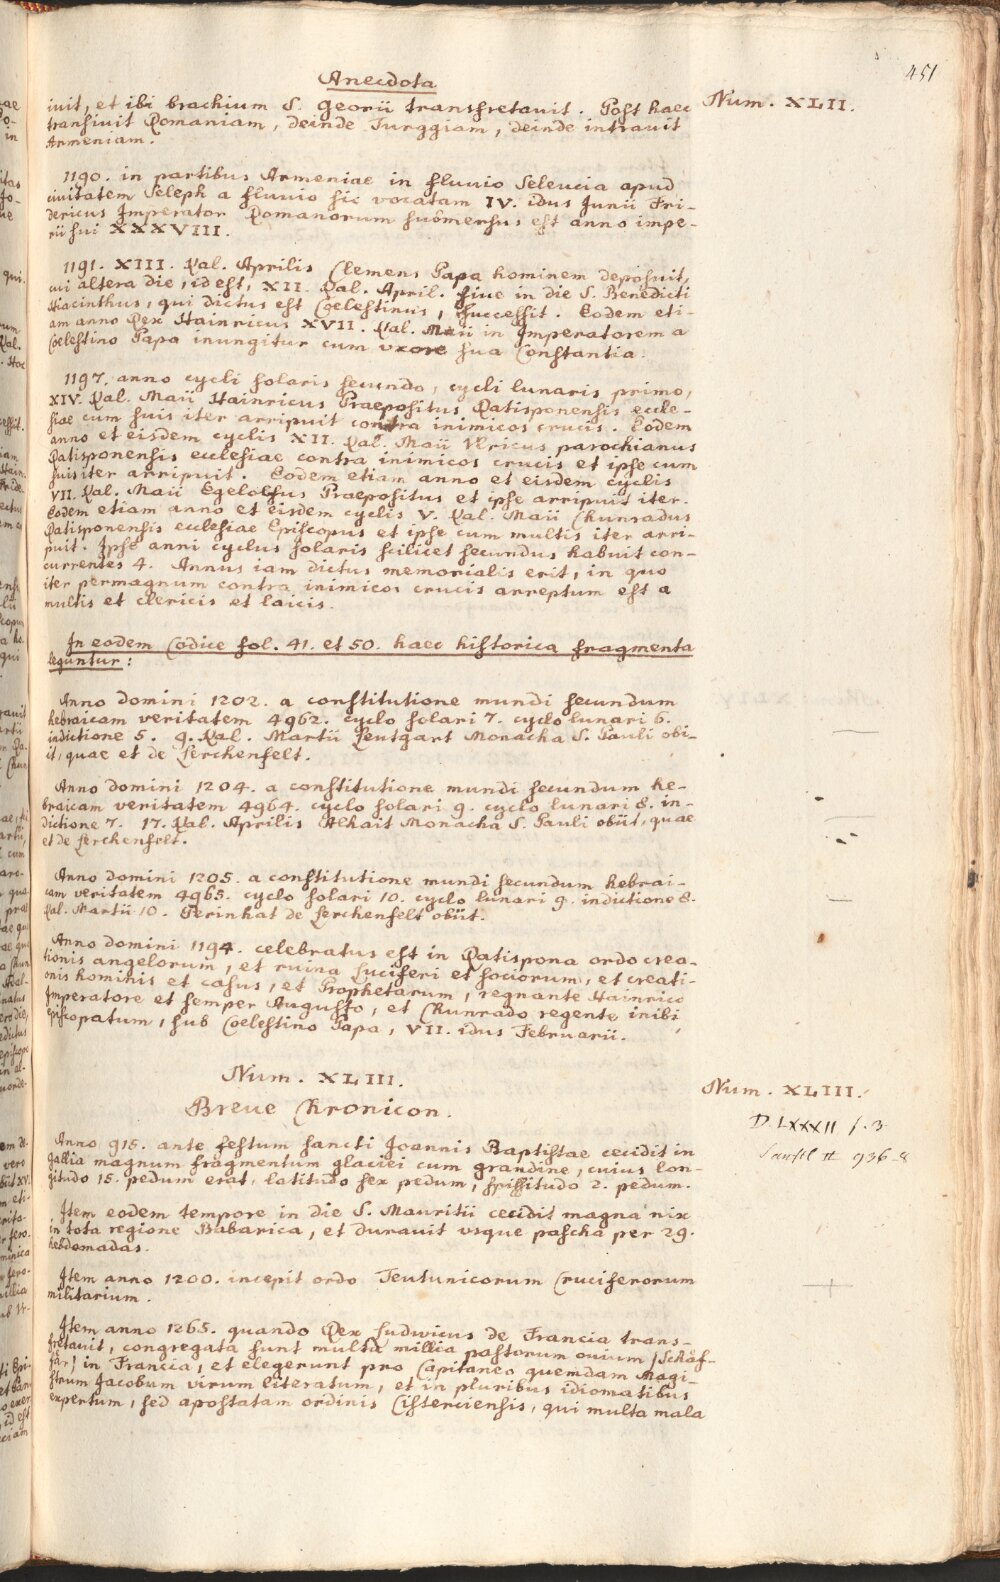 451
Anecdota
Num. XLII.
iuit, et ibi brachium S. Georii transfretauit. Post haec
transiuit Romaniam, deinde Turggiam, deinde intrauit
Armeniam.
1190. in partibus Armeniae in fluuio Seleucia apud
ciuitatem Seleph a fluuio sic vocatam IV. idus Junii Fri-
dericus Imperator Romanorum submersus est anno impe-
rii sui XXXVIII.
1191. XIII. Kal. Aprilis Clemens Papa hominem deposuit,
cui altera die, id est, XII. Kal. April. siue in die S. Benedicti
Hiacinthus, qui dictus est Coelestinus, successit. Eodem eti-
am anno Rex Hainricus XVII. Kal. Maii in Imperatorem a
Coelestino Papa inungitur cum vxore sua Constantia.
1197. anno cycli solaris secundo, cycli lunaris primo,
XIV. Kal. Maii Hainricus Praepositus Ratisponensis eccle-
siae cum suis iter arripuit contra inimicos crucis. Eodem
anno et eisdem cyclis XII. Kal. Maii Vlricus parochianus
Ratisponensis ecclesiae contra inimicos crucis et ipse cum
suis iter arripuit. Eodem etiam anno et eisdem cyclis
VII. Kal. Maii Egelolfus Praepositus et ipse arripuit iter.
Eodem etiam anno et eisdem cyclis V. Kal. Maii Chunradus
Ratisponensis ecclesiae Episcopus et ipse cum multis iter arri-
puit. Ipse anni cyclus solaris scilicet secundus habuit con-
currentes 4. Annus iam dictus memorialis erit, in quo
iter permagnum contra inimicos crucis arreptum est a
multis et clericis et laicis.
In eodem Codice fol. 41. et 50. haec historica fragmenta
leguntur:
Anno domini 1202. a constitutione mundi secundum
hebraicam veritatem 4962. cyclo solari 7. cyclo lunari 6.
indictione 5. 9. Kal. Martii Leutgart Monacha S. Pauli obi-
it, quae et de Lerchenfelt.
Anno domini 1204. a constitutione mundi secundum he-
braicam veritatem 4964. cyclo solari 9. cyclo lunari 8. in-
dictione 7. 17. Kal. Aprilis Alhait Monacha S. Pauli obiit, quae
et de Lerchenfelt.
Anno domini 1205. a constitutione mundi secundum hebrai-
cam veritatem 4965. cyclo solari 10. cyclo lunari 9. indictione 8.
Kal. Martii 10. Perinhat de Lerchenfelt obiit.
Anno domini 1194. celebratus est in Ratispona ordo crea-
tionis angelorum, et ruina Luciferi et sociorum, et creati-
onis hominis et casus, et Prophetarum, regnante Hainrico
Imperatore et semper Augusto, et Chunrado regente inibi
episcopatum, sub Coelestino Papa, VII. idus Februarii.
Num. XLIII.
Num. XLIII.
Breue Chronicon.
D. LXXXII f. 3
II 936-8
Anno 915. ante festum sancti Joannis Baptistae cecidit in
Gallia magnum fragmentum glaciei cum grandine, cuius lon-
gitudo 15. pedum erat, latitudo sex pedum, spissitudo 2. pedum.
Item eodem tempore in die S. Mauritii cecidit magna nix
in tota regione Babarica, et durauit vsque pascha per 29.
hebdomadas.
Item anno 1200. incepit ordo Teutunicorum Cruciferorum
militarium.
Item anno 1265. quando Rex Ludwicus de Francia trans-
fretauit, congregata sunt multa millia pastorum ouium /Schaf-
fär/ in Francia, et elegerunt pro Capitaneo quemdam Magi-
strum Jacobum virum literatum, et in pluribus idiomatibus
expertum, sed apostatam ordinis Cisterciensis, qui multa mala